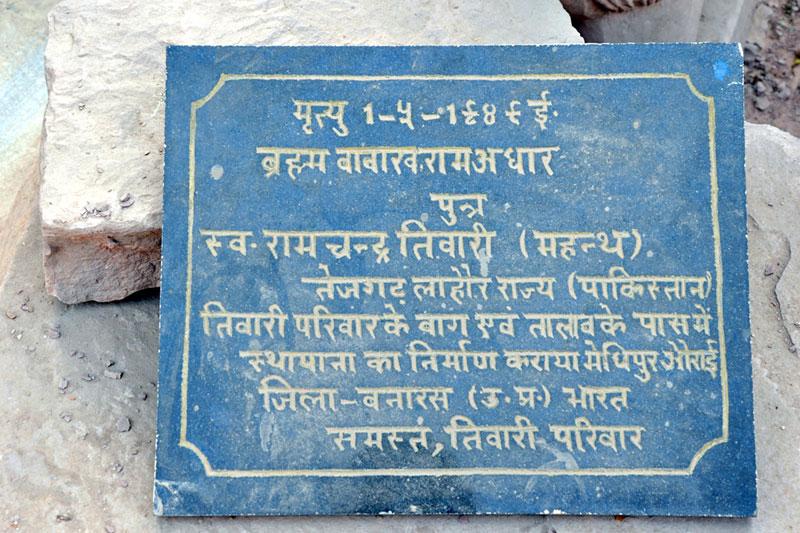 मृत्यु १-५-१९४६ ई.
ब्रह्म बाबा स्व. राम अधार
पुत्र
स्व. राम चन्द्र तिवारी (महन्थ)
तेजगट लाहोर राज्य (पाकिस्तान)
तिवारी परिवार के बाग एवं तालाब के पास में
स्थापाना का निर्माण कराया मेधिपुर औराई
जिला-बनारस (उ. प्र.) भारत
समस्तं, तिवारी परिवार